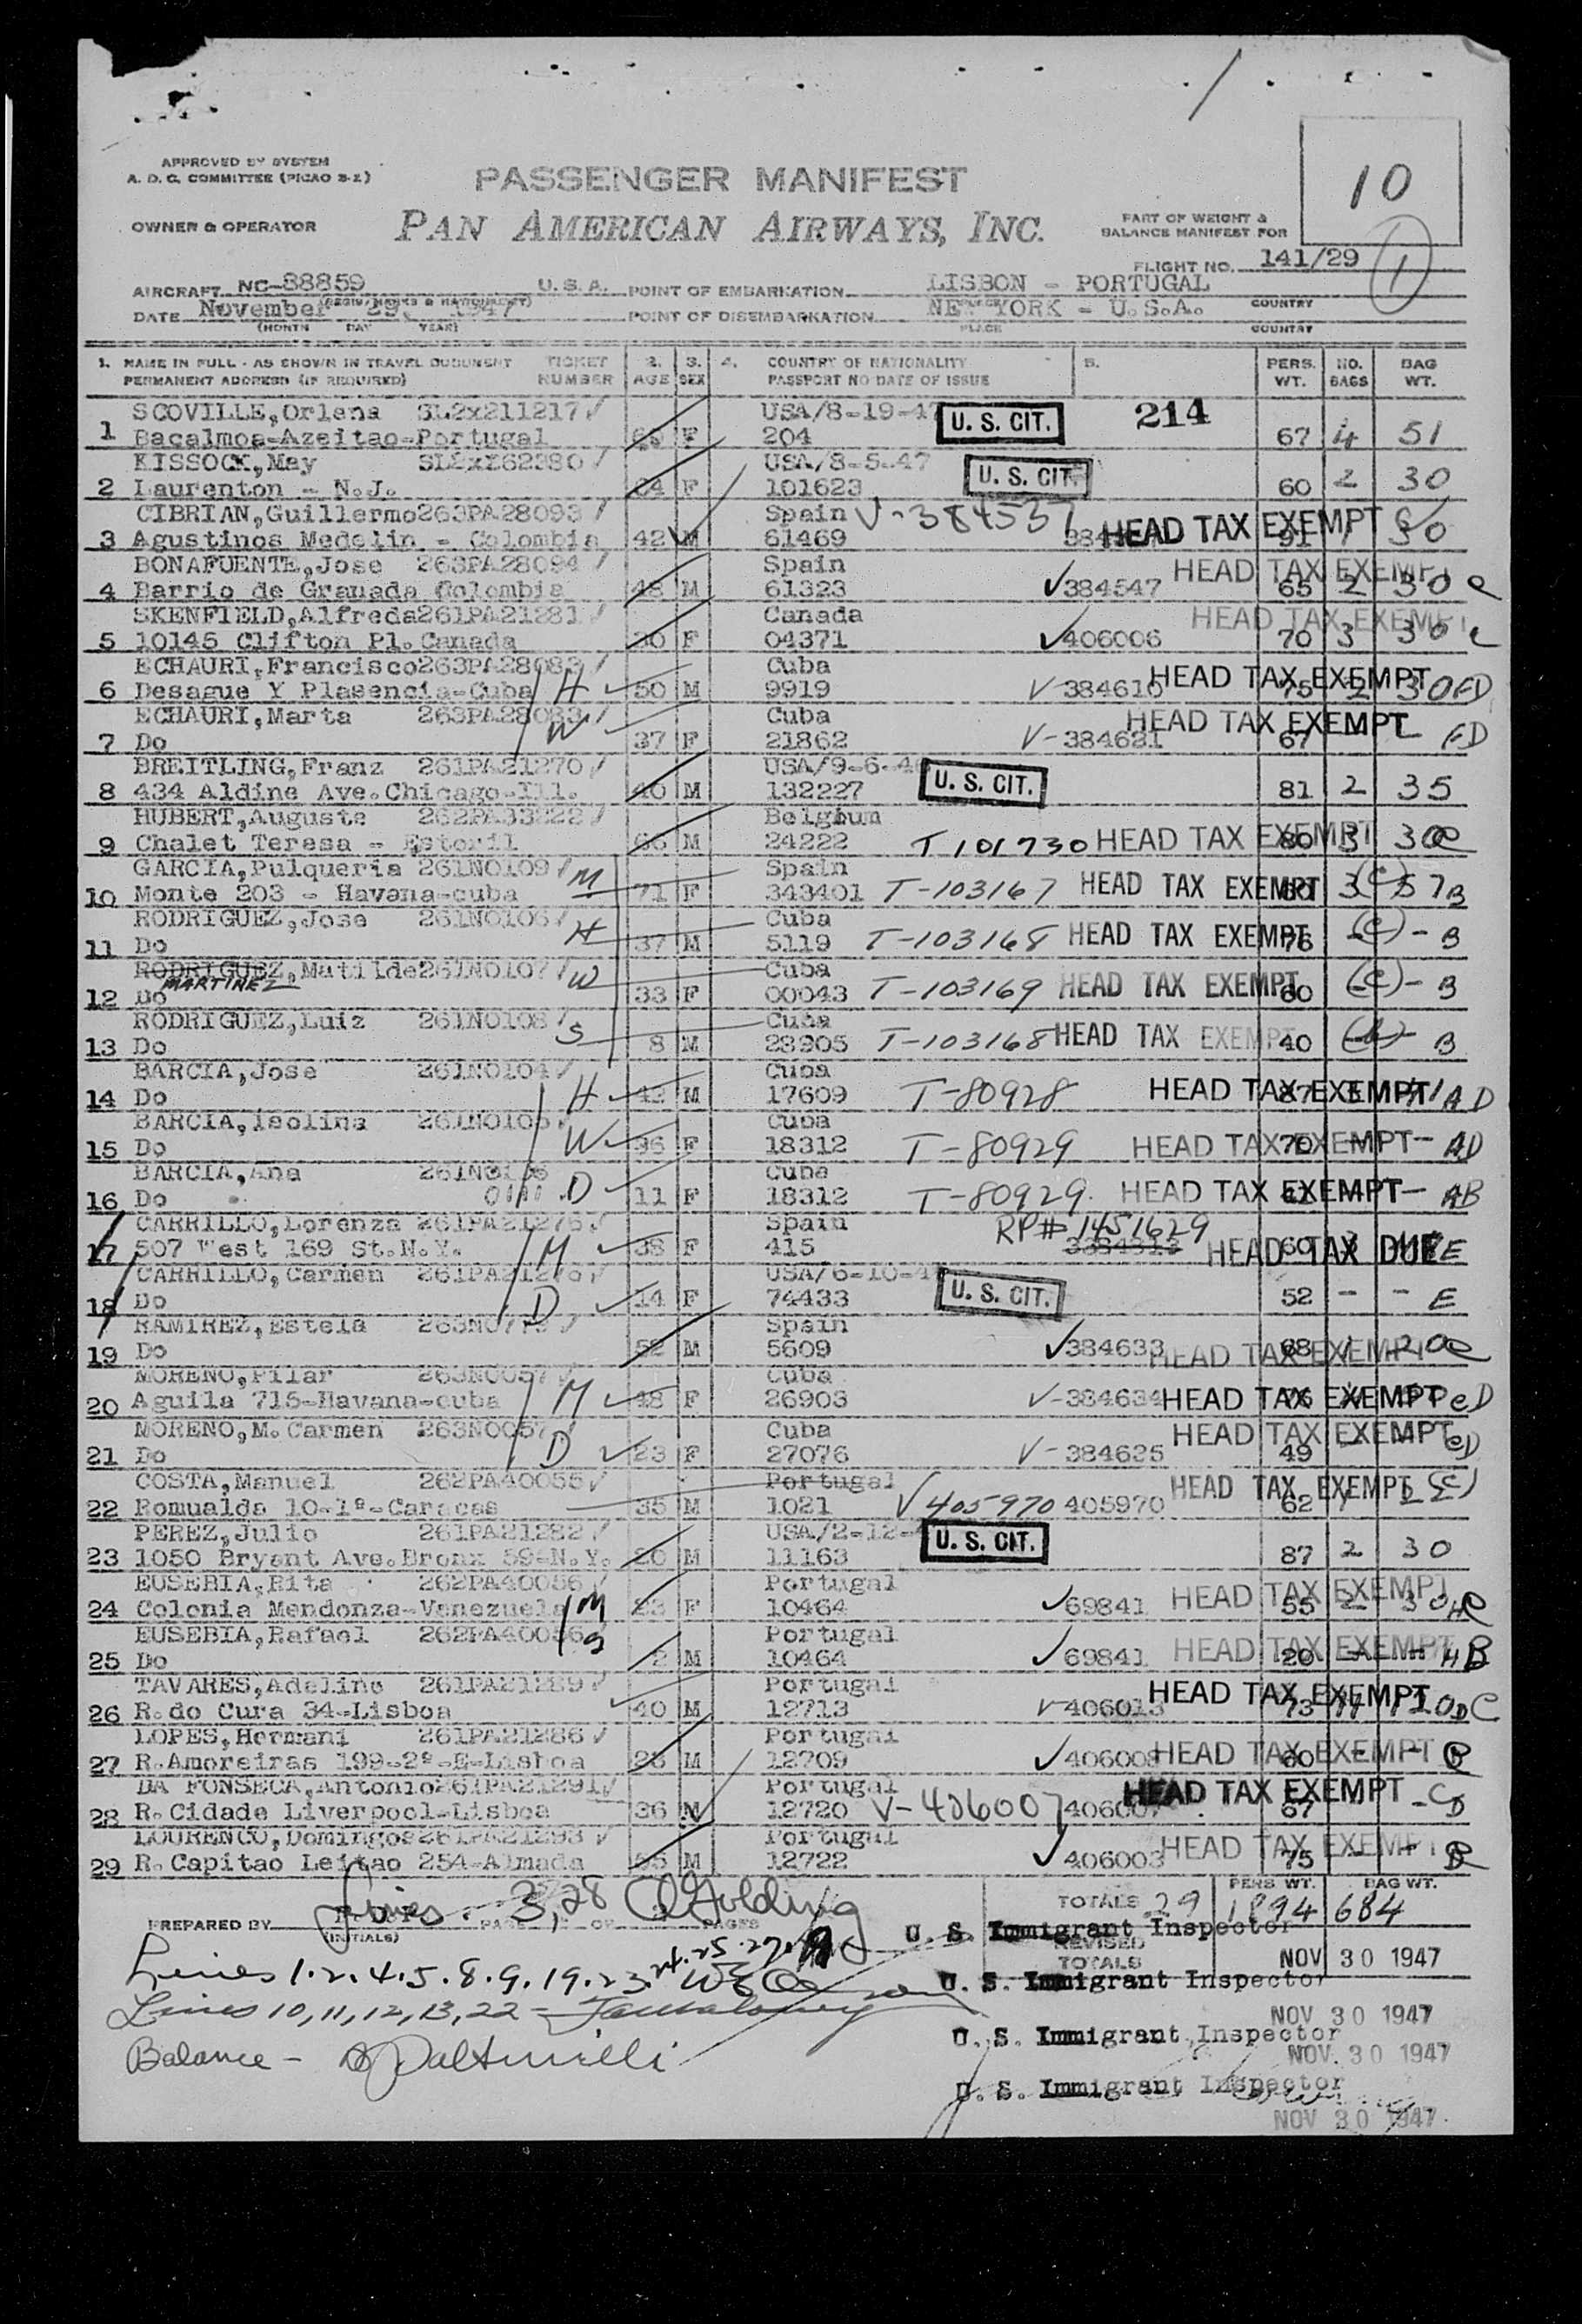 APPROVED BY SYSTEM
A. D. C. COMMITTEE (PICAO 2-1)
PASSENGER MANIFEST
10
OWNER & OPERATOR
PAN AMERICAN AIRWAYS, INC.
PART OF WEIGHT &
BALANCE MANIFEST FOR
FLIGHT NO. 141/29
1
AIRCRAFT NC-88859 U.S.A. POINT OF EMBARKATION LISBON - PORTUGAL
(REGIS. MARKS & NATIONALITY) COUNTRY
DATE November 29, 1947 POINT OF DISEMBARKATION NEW YORK - U.S.A.
(MONTH DAY YEAR) PLACE COUNTRY
1. NAME IN FULL - AS SHOWN IN TRAVEL DOCUMENT TICKET 2. 3. 4. COUNTRY OF NATIONALITY 5. PERS. NO. BAG
PERMANENT ADDRESS (IF REQUIRED) NUMBER AGE SEX PASSPORT NO DATE OF ISSUE WT. BAGS WT.
SCOVILLE,Orlena SL2x211217 USA/8-19-47 U. S. CIT. 214
1 Bacalmoa-Azeitao-Portugal F 204 67 4 51
KISSOCK,May USA/8-5-47 U. S. CIT.
2 Laurenton - N.J. F 101623 60 2 30
CIBRIAN,Guillermo 263PA28093 Spain V-384537 HEAD TAX EXEMPT
3 Agustinos Medelin - Colombia 42 M 61469 91 1 30
BONAFUENTE,Jose 263PA28094 Spain HEAD TAX EXEMPT
4 Barrio de Granada Colombia 48 M 61323 384547 65 2 30
SKENFIELD,Alfreda 261PA21281 Canada HEAD TAX EXEMPT
5 10145 Clifton Pl. Canada 30 F 04371 406006 70 3 30
ECHAURI,Francisco 263PA28083 Cuba
6 Desague Y Plasencia-Cuba H 50 M 9919 V-384616 HEAD TAX EXEMPT 75 2 30
ECHAURI,Marta 263PA28083 Cuba HEAD TAX EXEMPT
7 Do W 37 F 21862 V-384621 67
BREITLING,Franz 261PA21270 USA/9-6-46 U. S. CIT.
8 434 Aldine Ave.Chicago-Ill. 40 M 132227 81 2 35
HUBERT,Auguste 262PA33222 Belgium
9 Chalet Teresa - Estoril M 24222 T 101730 HEAD TAX EXEMPT 80 3 30
GARCIA,Pulqueria 261NO109 M Spain
10 Monte 203 - Havana-cuba 71 F 343401 T-103167 HEAD TAX EXEMPT 3 57 B
RODRIGUEZ,Jose 261NO106 H Cuba
11 Do 37 M 5119 T-103168 HEAD TAX EXEMPT 76 (C) - B
RODRIGUEZ,Matilde 261NO107 W Cuba
MARTINEZ
12 Do 33 F 00043 T-103169 HEAD TAX EXEMPT 60 (C) - B
RODRIGUEZ,Luiz 261NO108 S Cuba
13 Do 8 M 23905 T-103168 HEAD TAX EXEMPT 40 B
BARCIA,Jose 261NO104 Cuba
14 Do H 42 M 17609 T-80928 HEAD TAX EXEMPT 87 AD
BARCIA,Isolina 261NO105 Cuba
15 Do W 36 F 18312 T-80929 HEAD TAX EXEMPT 70 - AD
BARCIA,Ana Cuba
16 Do D 11 F 18312 T-80929 HEAD TAX EXEMPT - AB
CARRILLO,Lorenza 261PA21275 Spain RP# 1451629
17 507 West 169 St.N.Y. M 38 F 415 HEAD TAX DUE 60 E
CARRILLO,Carmen 261PA21276 USA/6-10-4 U. S. CIT.
18 Do D 14 F 74433 52 - - E
RAMIREZ,Estela Spain
19 Do 52 M 5609 384633 HEAD TAX EXEMPT 68 1 20
MORENO,Pilar 263NO057 Cuba
20 Aguila 715-Havana-cuba M 48 F 26903 V-384634 HEAD TAX EXEMPT
MORENO,M. Carmen 263NO057 Cuba HEAD TAX EXEMPT
21 Do D 23 F 27076 V-384625 49
COSTA,Manuel 262PA40055 Portugal HEAD TAX EXEMPT
22 Romualda 10-1º-Caracas 35 M 1021 V 405970 405970 62
PEREZ,Julio 261PA21282 USA/2-12- U. S. CIT.
23 1050 Bryant Ave.Bronx 59-N.Y. 20 M 11163 87 2 30
EUSEBIA,Rita 262PA40056 Portugal HEAD TAX EXEMPT
24 Colonia Mendonza-Venezuela M 23 F 10464 69841 55 2 30
EUSEBIA,Rafael 262PA40056 S Portugal
25 Do 2 M 10464 69841 HEAD TAX EXEMPT 20 - - HB
TAVARES,Adelino 261PA21289 Portugal
26 R.do Cura 34-Lisboa 40 M 12713 V-406013 HEAD TAX EXEMPT 73
LOPES,Hermani 261PA21286 Portugal
27 R.Amoreiras 199-2º-E-Lisboa M 12709 HEAD TAX EXEMPT 60
DA FONSECA,Antonio 261PA21291 Portugal HEAD TAX EXEMPT
28 R. Cidade Liverpool-Lisboa 36 M 12720 V-406007 406007 67
LOURENCO,Domingos 261PA21293 Portugal
29 R. Capitao Leitao 254-Almada M 12722 406003 HEAD TAX EXEMPT 75
PREPARED BY Lines 3, 28 Golding PAGES
(INITIALS)
TOTALS 29 PERS WT. 1894 BAG WT. 684
U. S Immigrant Inspector
REVISED
TOTALS NOV 30 1947
Lines 1.2.4.5.8.9.19.23.24.25.27.29
U. S. Immigrant Inspector
Lines 10,11,12,13,22 -
NOV 30 1947
U. S. Immigrant Inspector
NOV. 30 1947
Balance -
U. S. Immigrant Inspector
NOV 30 1947